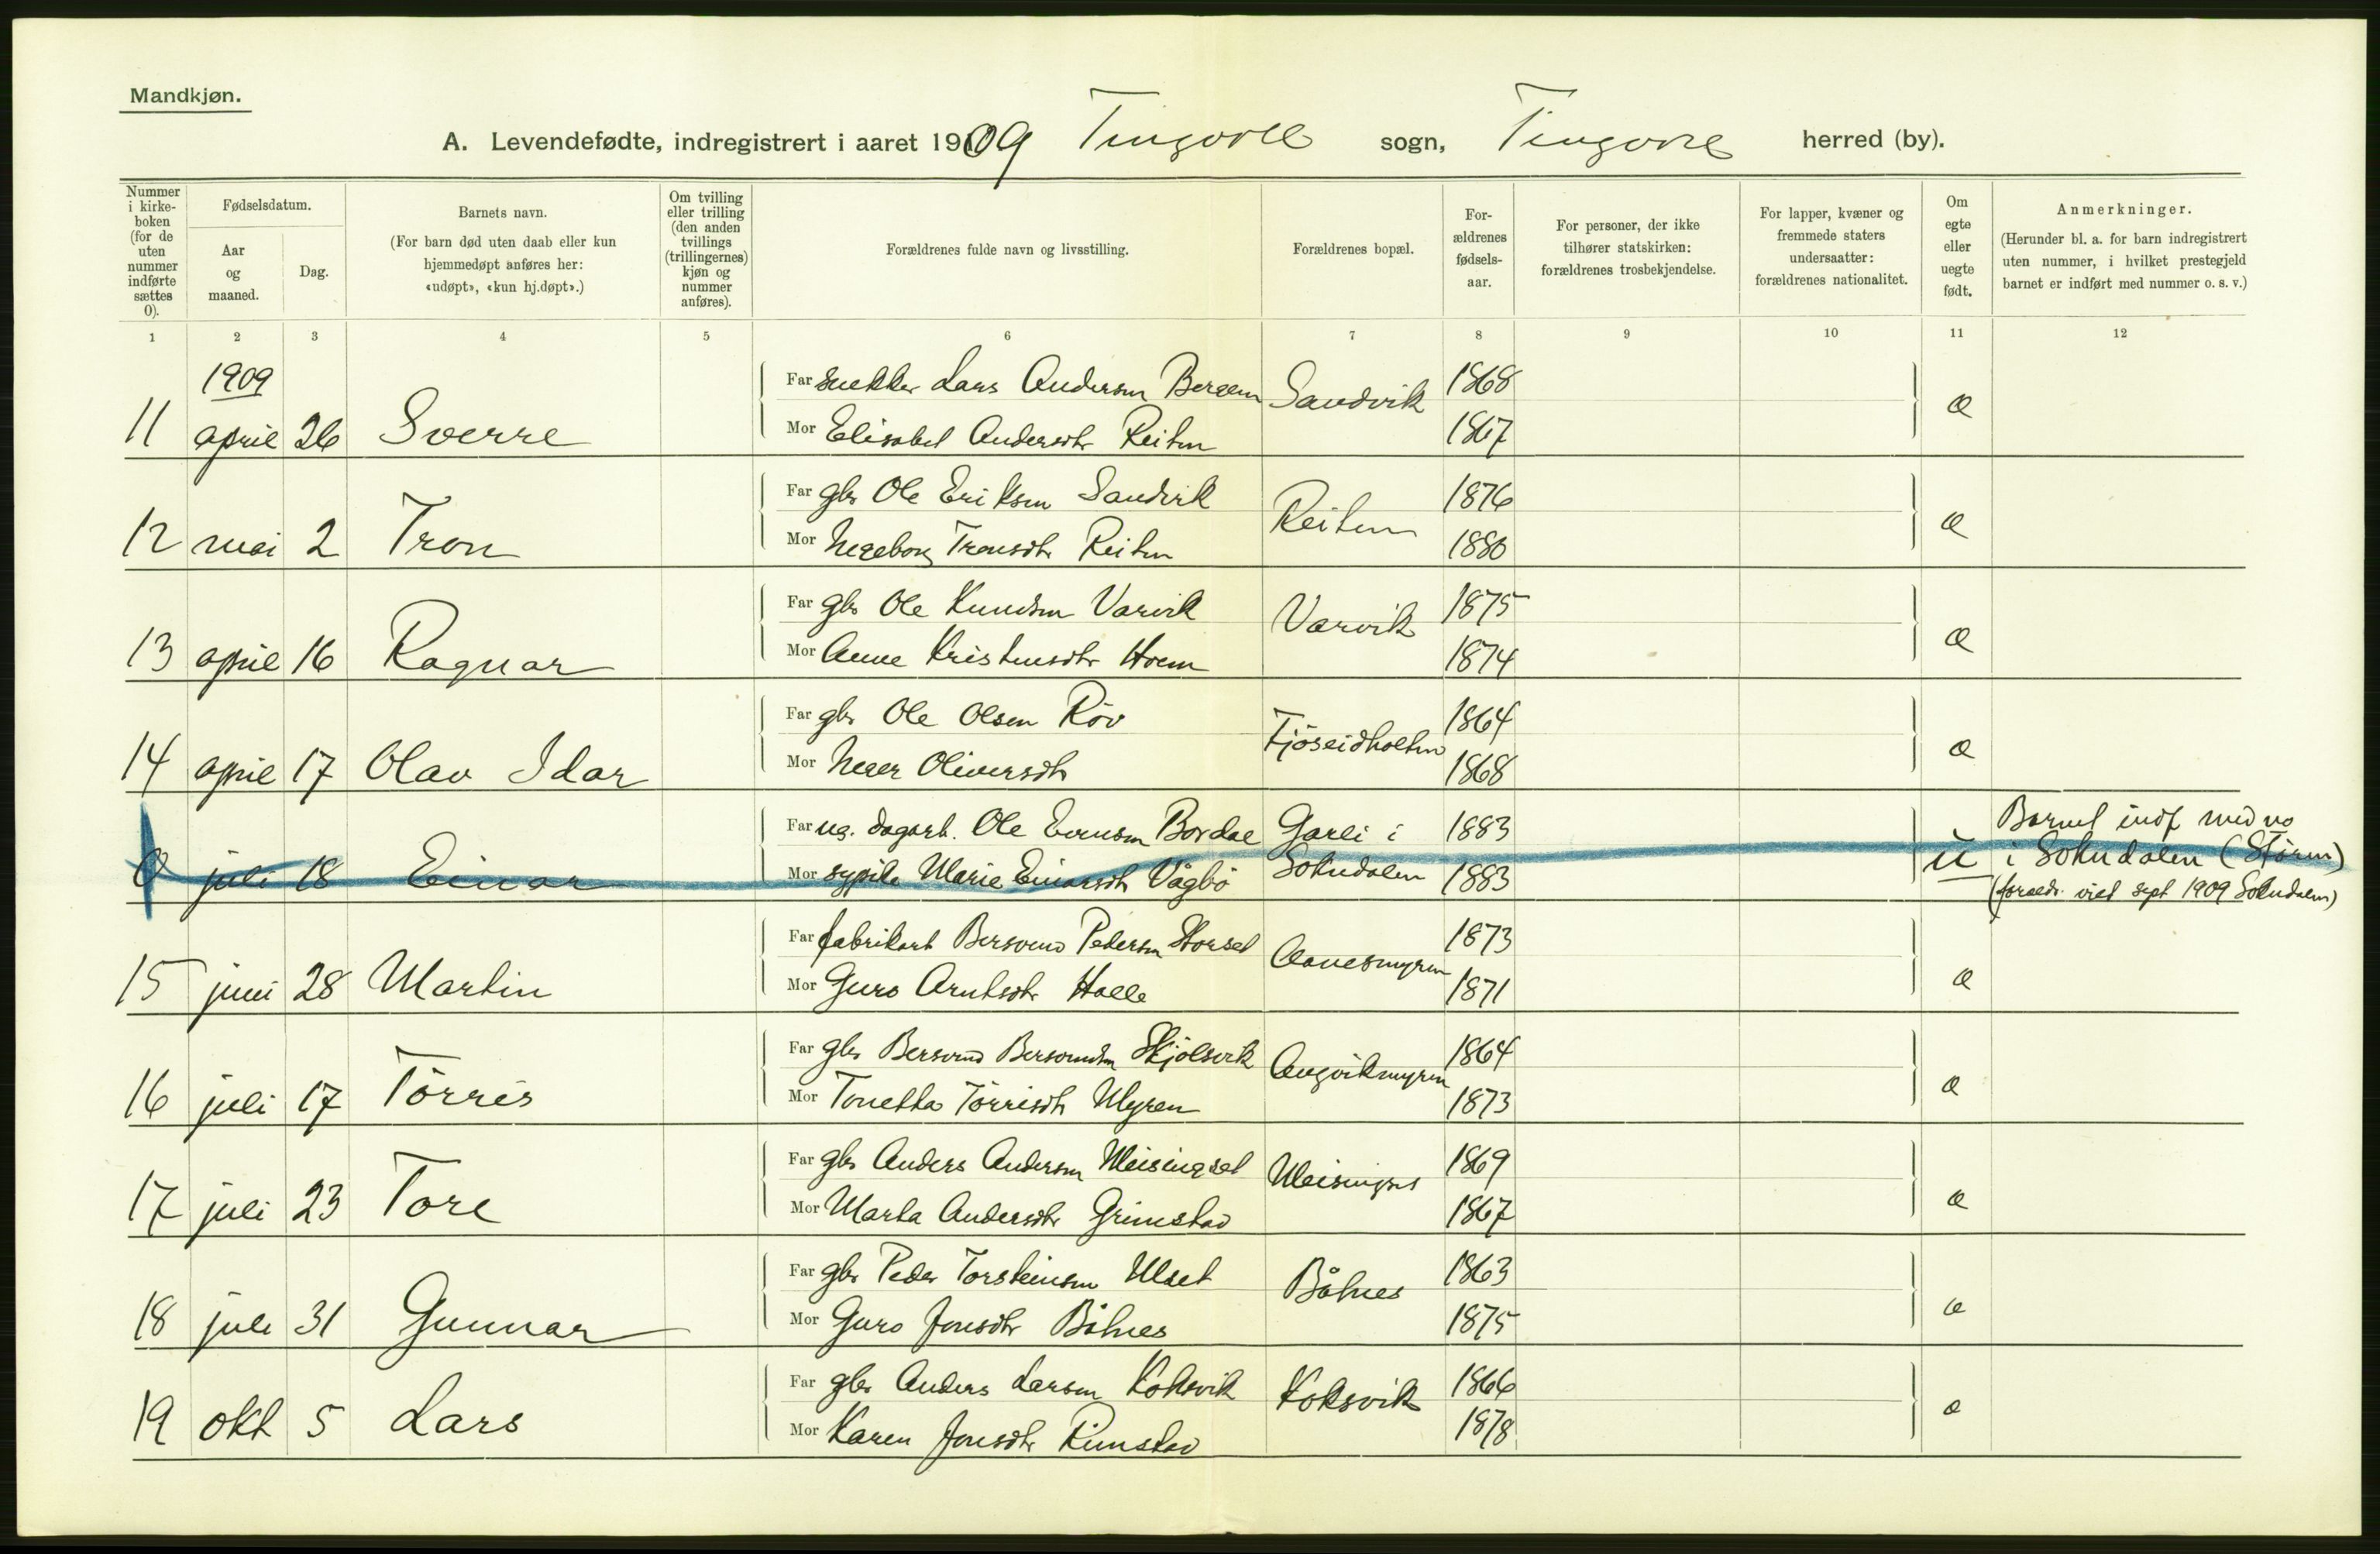 Mandkjøn.
A. Levendefødte, indregistrert i aaret 1909 Tingvoll sogn, Tingvoll herred (by).
Nummer i kirke-boken (for de uten nummer indførte sættes 0).
Fødselsdatum.
Aar og maaned.
Dag.
Barnets navn.
(For barn død uten daab eller kun hjemmedøpt anføres her: «udøpt», «kun hj.døpt».)
Om tvilling eller trilling (den anden tvillings (trillingernes) kjøn og nummer anføres).
Forældrenes fulde navn og livsstilling.
Forældrenes bopæl.
For-ældrenes fødsels-aar.
For personer, der ikke tilhører statskirken: forældrenes trosbekjendelse.
For lapper, kvæner og fremmede staters undersaatter: forældrenes nationalitet.
Om egte eller uegte født.
Anmerkninger.
(Herunder bl. a. for barn indregistrert uten nummer, i hvilket prestegjeld barnet er indført med nummer o. s. v.)
1 2 3 4 5 6 7 8 9 10 11 12
1909
Far snekker Lars Andersen Bergem Sandvik 1868
11 april 26 Sverre Mor Elisabet Andersdtr Reiten 1867 æ
Far gbr Ole Eriksen Sandvik Reiten 1876
12 mai 2 Tron Mor Ingeborg Tronsdtr Reiten 1880 æ
Far gbr Ole Knudsen Varvik Varvik 1875
13 april 16 Ragnar Mor Anne Kristensdtr Hoem 1874 æ
Far gbr Ole Olsen Röv Fjöseidholten 1864
14 april 17 Olav Idar Mor Inger Oliversdtr 1868 æ
Far ug. dagarb. Ole Evensen Bordal Garli i 1883 Barnet indf med no
0 juli 18 Einar Mor sypike Marie Einarsdtr Vågbö Sokndalen 1883 u i Sokndalen (Stören)
(foreldr. viet sept 1909 Sokndalen)
Far fabrikarb Bersvend Pedersen Storset Aanesmyren 1873
15 juni 28 Martin Mor Guro Arntsdtr Halle 1871 æ
Far gbr Bersvend Bersvendsen Skjölsvik Angvikmyren 1864
16 juli 17 Törris Mor Tonetta Törrisdtr Myren 1873 æ
Far gbr Anders Andersen Meisingset Meisingset 1869
17 juli 23 Tore Mor Marta Andersdtr Grimstad 1867 æ
Far gbr Peder Torsteinsen Ulset Båhnes 1863
18 juli 31 Gunnar Mor Guro Jonsdtr Båhnes 1875 æ
Far gbr Anders Larsen Koksvik Koksvik 1866
19 okt 5 Lars Mor Karen Jonsdtr Rimstad 1878 æ